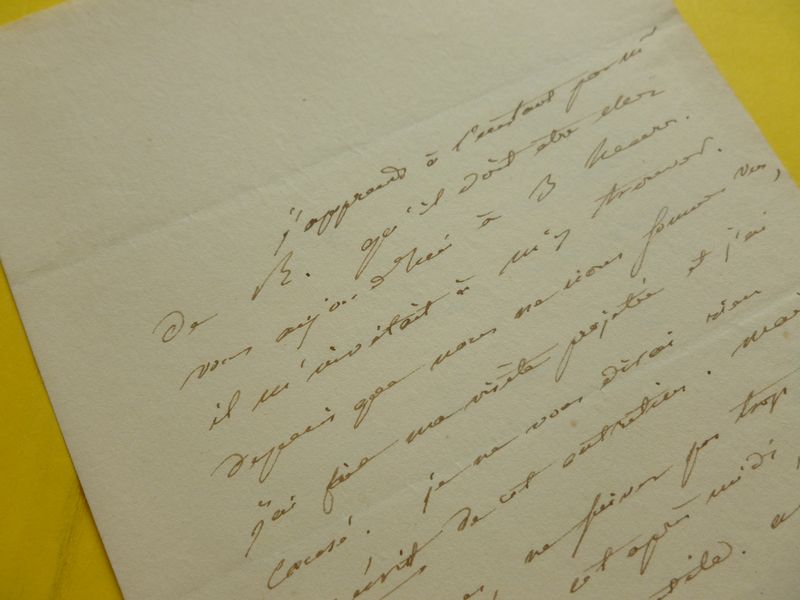 j'apprends à l'instant par Mr
de R. qu'il doit être chez
vous aujourd'hui à 3 heures.
il m'invitait à m'y trouver.
depuis que nous ne nous sommes vus,
j'ai fait ma visite projetée et j'ai
causé. je ne vous dirai rien
de cet entretien. mais
ne soyez pas trop
cet après midi,